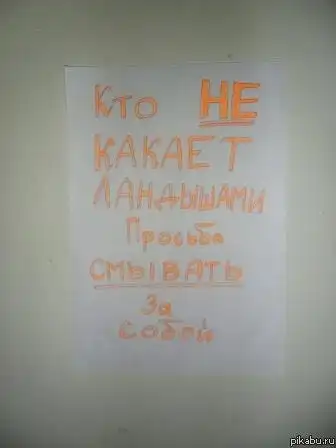 Кто НЕ
КАКАЕТ
ЛАНДЫШАМИ
Просьба
СМЫВАТЬ
За
собой
pikabu.ru